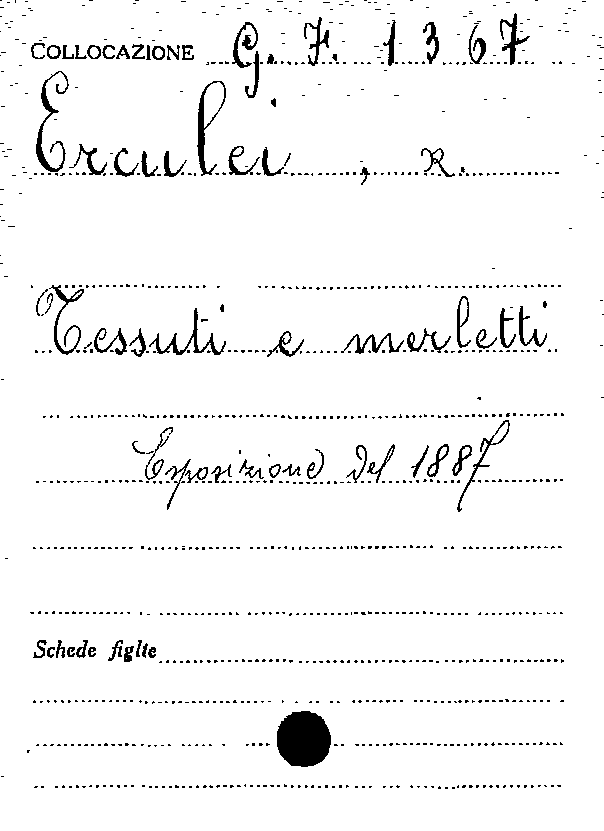 COLLOCAZIONE G. F. 1367
Erculei, R.
Tessuti e merletti
Esposizione del 1887
Schede figlte